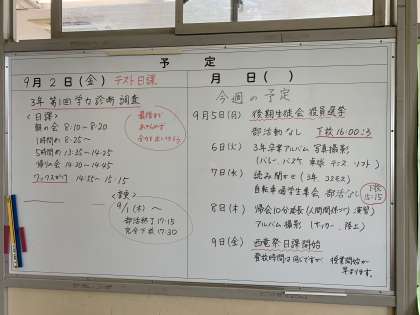 予定
9月2日(金) テスト日課
3年 第1回学力診断調査
<日課>
朝の会 8:10~8:20
1時間め 8:25~
5時間め 13:35~14:25
帰りの会 14:30~14:45
ワックスがけ 14:55~15:15
最後まで
あきらめず
<変更>
9/1(木)~
部活終了17:15
完全下校17:30
月 日( )
今週の予定
9月5日(月) 後期生徒会 役員選挙
部活動なし 下校16:00ごろ
6日(火) 3年卒業アルバム写真撮影
(バレー、バスケ 卓球 テニス ソフト)
7日(水) 読み聞かせ(3年 コスモス)
自転車通学生集会 部活なし 下校
15:15
8日(木) 帰会10分延長(人間関係づくり演習)
アルバム撮影(サッカー、陸上)
9日(金) 西竜祭日課開始
登校時間は同じですが 授業開始が
早まります。